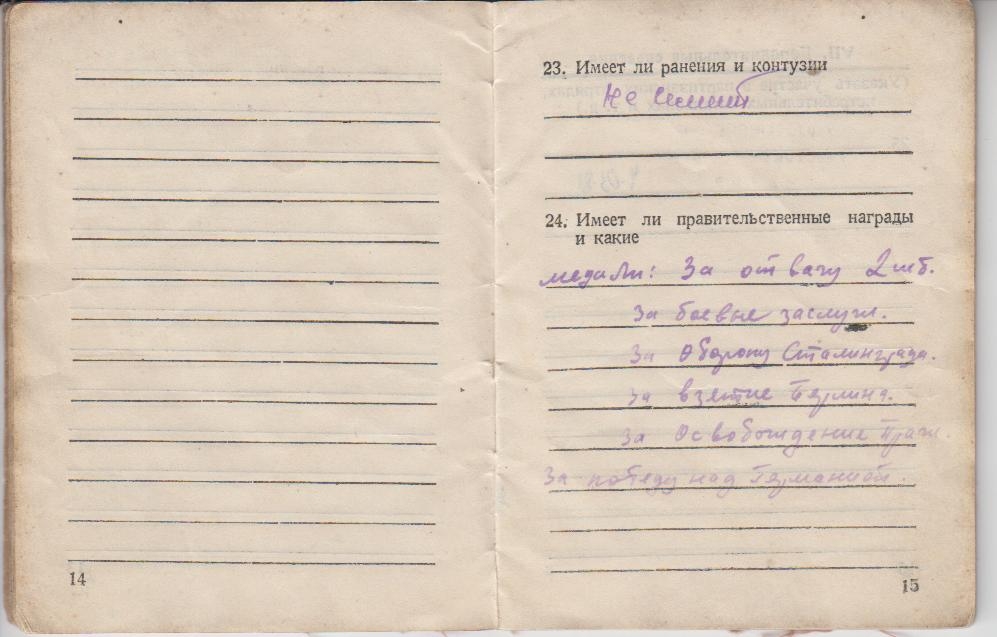 23. Имеет ли ранения и контузии
Не имеет
24. Имеет ли правительственные награды
и какие
медали: За отвагу 2 шт.
За боевые заслуги.
За оборону Сталинграда.
За взятие Берлина.
За освобождение Праги.
За победу над Германией.
14
15